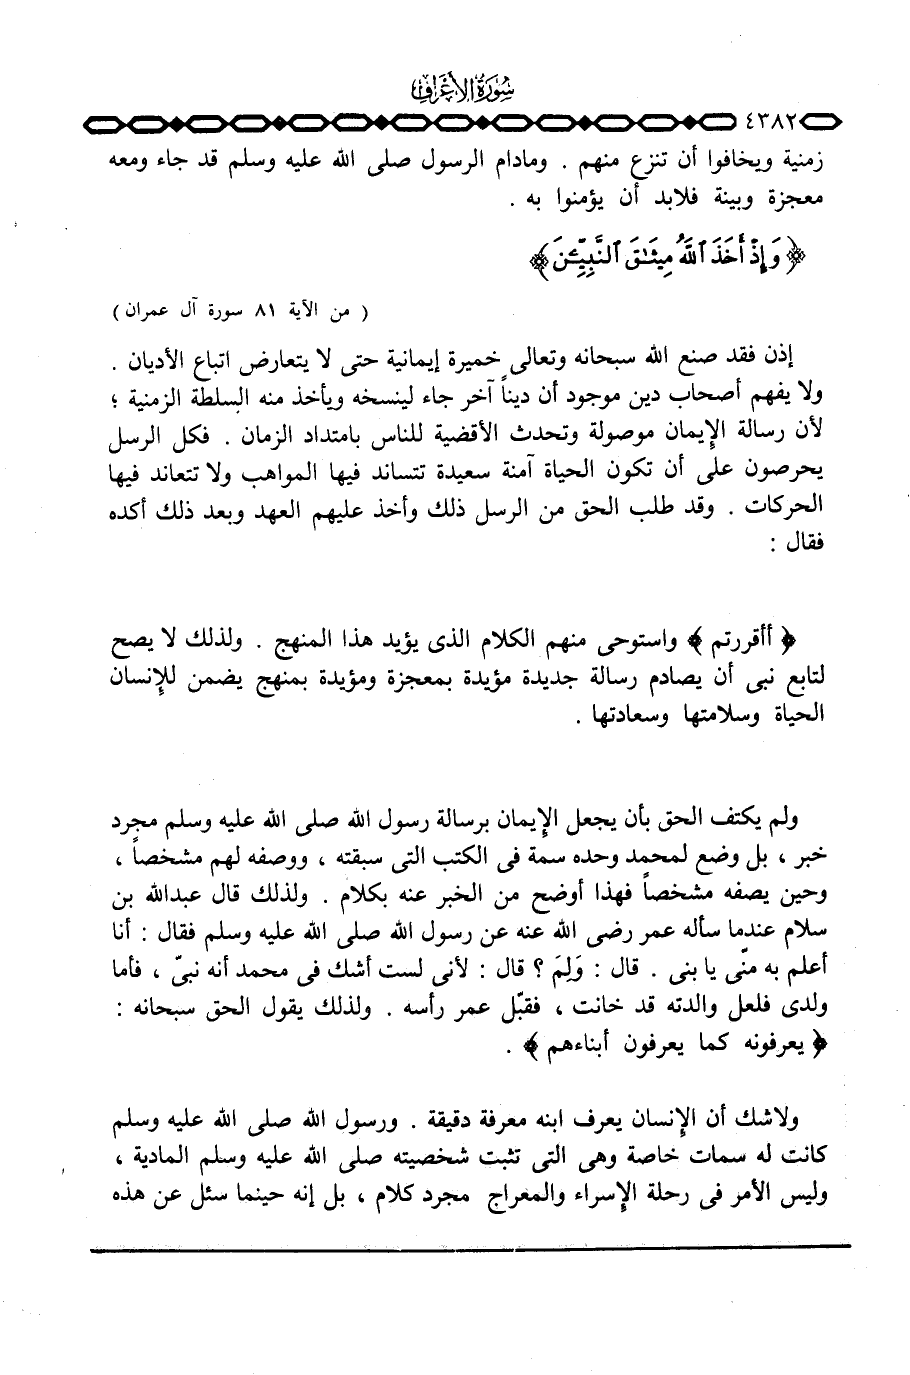 سُورَةُ الأَعْرَافِ
٤٣٨٢
زمنية ويخافوا أن تنزع منهم . ومادام الرسول صلى الله عليه وسلم قد جاء ومعه
معجزة وبينة فلابد أن يؤمنوا به .
﴿ وَإِذْ أَخَذَ ٱللَّهُ مِيثَٰقَ ٱلنَّبِيِّـۧنَ ﴾
( من الآية ٨١ سورة آل عمران )
إذن فقد صنع الله سبحانه وتعالى خميرة إيمانية حتى لا يتعارض اتباع الأديان .
ولا يفهم أصحاب دين موجود أن ديناً آخر جاء لينسخه ويأخذ منه السلطة الزمنية ؛
لأن رسالة الإيمان موصولة وتحدث الأقضية للناس بامتداد الزمان . فكل الرسل
يحرصون على أن تكون الحياة آمنة سعيدة تتساند فيها المواهب ولا تتعاند فيها
الحركات . وقد طلب الحق من الرسل ذلك وأخذ عليهم العهد وبعد ذلك أكده
فقال :
﴿ أأقررتم ﴾ واستوحى منهم الكلام الذى يؤيد هذا المنهج . ولذلك لا يصح
لتابع نبى أن يصادم رسالة جديدة مؤيدة بمعجزة ومؤيدة بمنهج يضمن للإنسان
الحياة وسلامتها وسعادتها .
ولم يكتف الحق بأن يجعل الإيمان برسالة رسول الله صلى الله عليه وسلم مجرد
خبر ، بل وضع لمحمد وحده سمة فى الكتب التى سبقته ، ووصفه لهم مشخصاً ،
وحين يصفه مشخصاً فهذا أوضح من الخبر عنه بكلام . ولذلك قال عبدالله بن
سلام عندما سأله عمر رضى الله عنه عن رسول الله صلى الله عليه وسلم فقال : أنا
أعلم به منّى يا بنى . قال : وَلِمَ ؟ قال : لأنى لست أشك فى محمد أنه نبىّ ، فأما
ولدى فلعل والدته قد خانت ، فقبّل عمر رأسه . ولذلك يقول الحق سبحانه :
﴿ يعرفونه كما يعرفون أبناءهم ﴾ .
ولاشك أن الإنسان يعرف ابنه معرفة دقيقة . ورسول الله صلى الله عليه وسلم
كانت له سمات خاصة وهى التى تثبت شخصيته صلى الله عليه وسلم المادية ،
وليس الأمر فى رحلة الإسراء والمعراج مجرد كلام ، بل إنه حينما سئل عن هذه